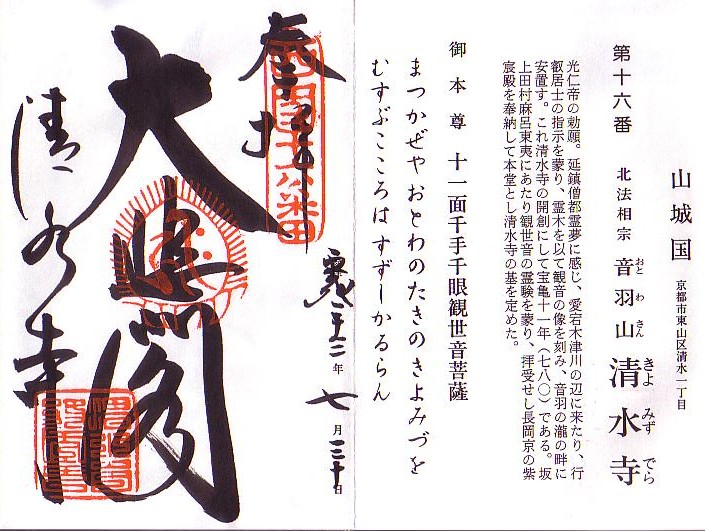 山城国
京都市東山区清水一丁目
第十六番
北法相宗
音羽山
おとわさん
清水寺
きよみずでら
光仁帝の勅願。延鎮僧都霊夢に感じ、愛宕木津川の辺に来たり、行
叡居士の指示を蒙り、霊木を以て観音の像を刻み、音羽の瀧の畔に
安置す。これ清水寺の開創にして宝亀十一年（七八〇）である。坂
上田村麻呂東夷にあたり観世音の霊験を蒙り、拝受せし長岡京の紫
宸殿を奉納して本堂とし清水寺の基を定めた。
御本尊 十一面千手千眼観世音菩薩
まつかぜやおとわのたきのきよみづを
むすぶこころはすずしかるらん
奉拝
西国十六番
大悲閣
清水寺
年七月三十日